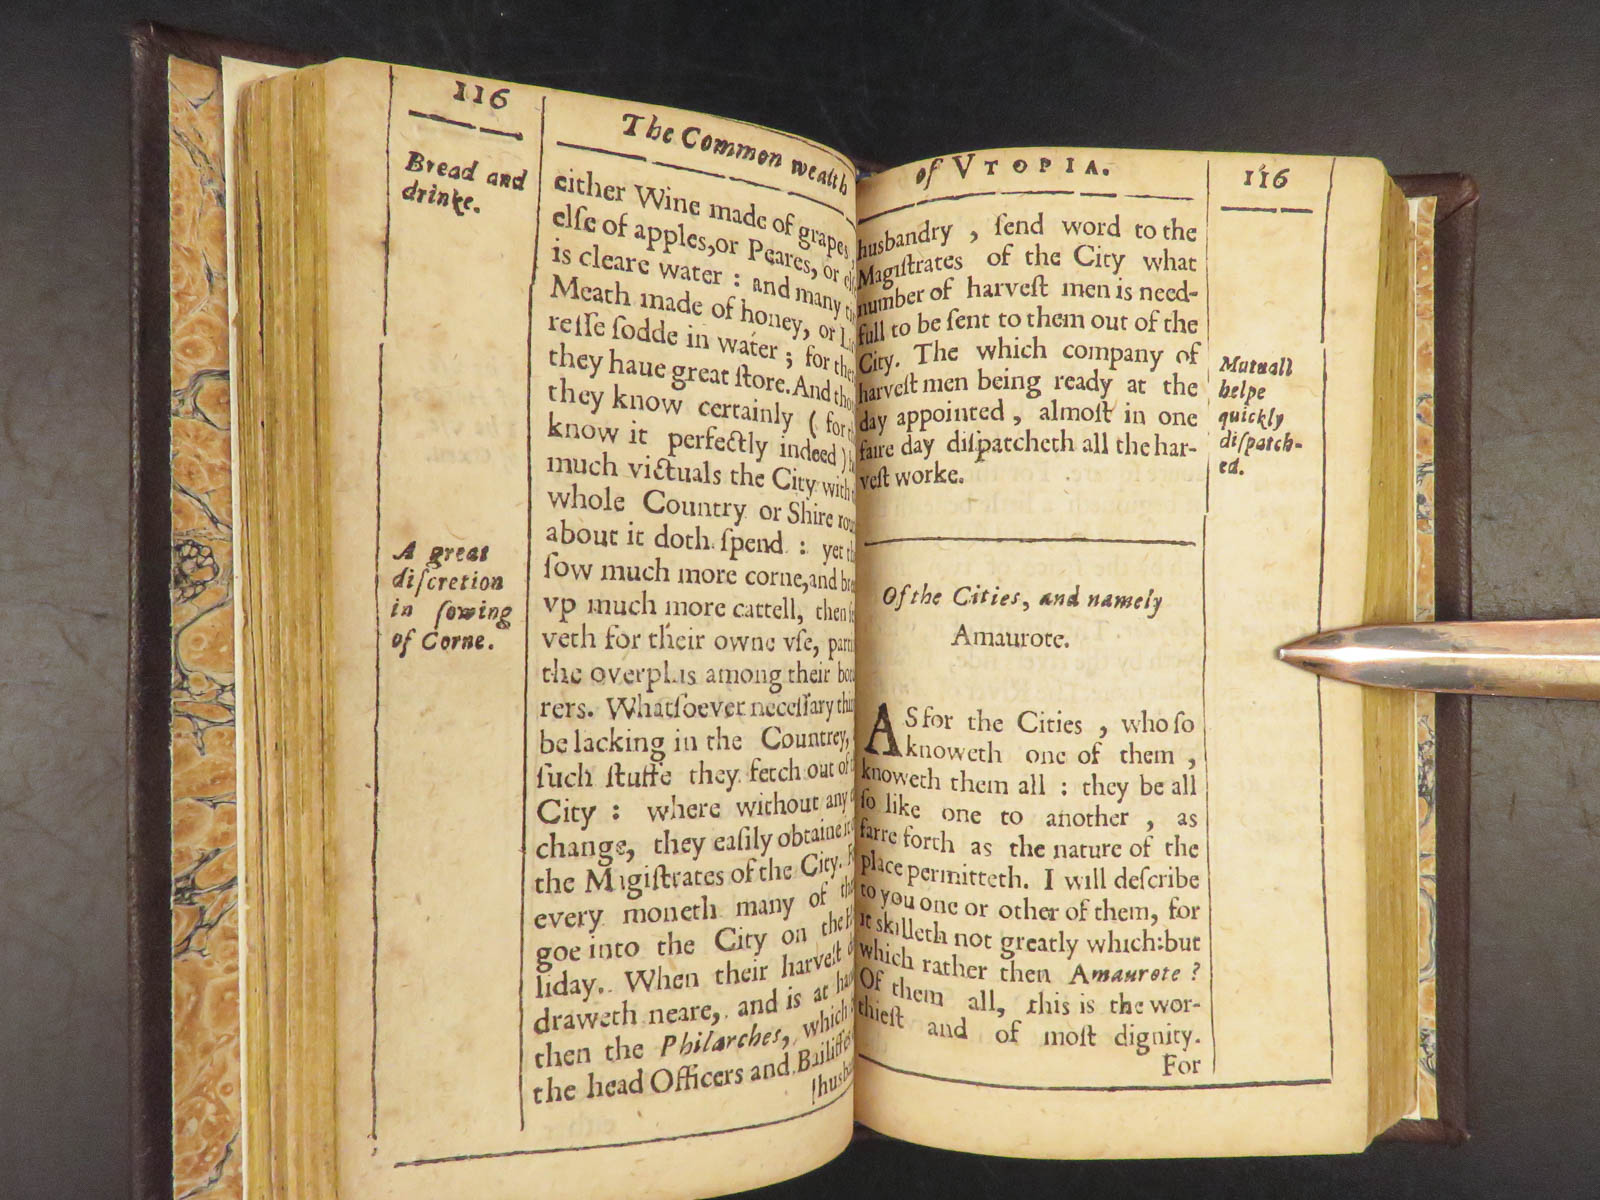 116
The Common wealth
Bread and
drinke.
either Wine made of grapes,
elſe of apples,or Peares, or
is cleare water : and many
Meath made of honey, or
reſſe ſodde in water ; for
they haue great ſtore. And
they know certainly ( for
know it perfectly indeed )
much victuals the City with
whole Country or Shire
about it doth ſpend : yet
ſow much more corne,and
vp much more cattell, then
veth for their owne vſe,
the overplus among their
rers. Whatſoever neceſſary
be lacking in the Countrey,
ſuch ſtuffe they fetch out of
City : where without any
change, they eaſily obtaine
the Magiſtrates of the City.
every moneth many of
goe into the City on the
liday. When their harveſt
draweth neare, and is at
then the Philarches, which
the head Officers and Bailiffes
A great
diſcretion
in ſowing
of Corne.
of VTOPIA.
116
husbandry , ſend word to the
Magiſtrates of the City what
number of harveſt men is need-
full to be ſent to them out of the
City. The which company of
harveſt men being ready at the
day appointed , almoſt in one
faire day diſpatcheth all the har-
veſt worke.
Mutuall
helpe
quickly
diſpatch-
ed.
Of the Cities, and namely
Amaurote.
AS for the Cities , who ſo
knoweth one of them ,
knoweth them all : they be all
ſo like one to another , as
farre forth as the nature of the
place permitteth. I will deſcribe
to you one or other of them, for
it skilleth not greatly which:but
which rather then Amaurote ?
Of them all, this is the wor-
thieſt and of moſt dignity.
For